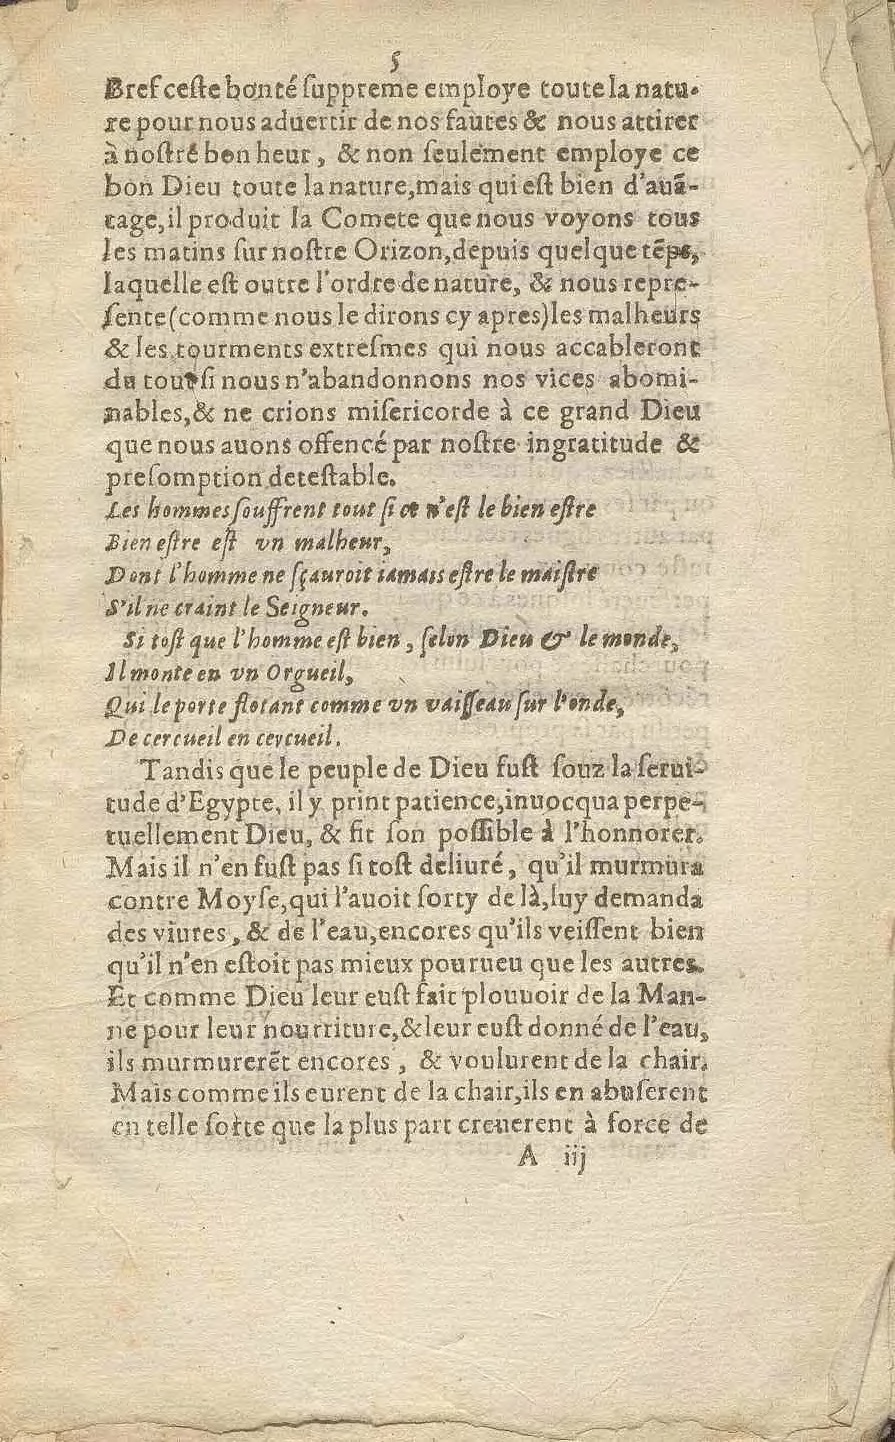 5
Bref ceſte bonté ſuppreme employe toute la natu-
re pour nous aduertir de nos fautes & nous attirer
à noſtre bon heur, & non ſeulement employe ce
bon Dieu toute la nature, mais qui eſt bien d'auā-
tage, il produit la Comete que nous voyons tous
les matins ſur noſtre Orizon, depuis quelque tēps,
laquelle eſt outre l'ordre de nature, & nous repre-
ſente (comme nous le dirons cy apres) les malheurs
& les tourments extreſmes qui nous accableront
du tout ſi nous n'abandonnons nos vices abomi-
nables, & ne crions miſericorde à ce grand Dieu
que nous auons offencé par noſtre ingratitude &
preſomption deteſtable.
Les hommes ſouffrent tout ſi ce n'eſt le bien eſtre
Bien eſtre eſt vn malheur,
Dont l'homme ne ſçauroit iamais eſtre le maiſtre
S'il ne craint le Seigneur.
Si toſt que l'homme eſt bien, ſelon Dieu & le monde,
Il monte en vn Orgueil,
Qui le porte flotant comme vn vaiſſeau ſur l'onde,
De cercueil en cercueil.
Tandis que le peuple de Dieu fuſt ſouz la ſerui-
tude d'Egypte, il y print patience, inuocqua perpe-
tuellement Dieu, & fit ſon poſſible à l'honnorer.
Mais il n'en fuſt pas ſi toſt deliuré, qu'il murmura
contre Moyſe, qui l'auoit ſorty de là, luy demanda
des viures, & de l'eau, encores qu'ils veiſſent bien
qu'il n'en eſtoit pas mieux pourueu que les autres.
Et comme Dieu leur euſt fait plouuoir de la Man-
ne pour leur nourriture, & leur euſt donné de l'eau,
ils murmurerēt encores, & voulurent de la chair.
Mais comme ils eurent de la chair, ils en abuſerent
en telle ſorte que la plus part creuerent à force de
A iij